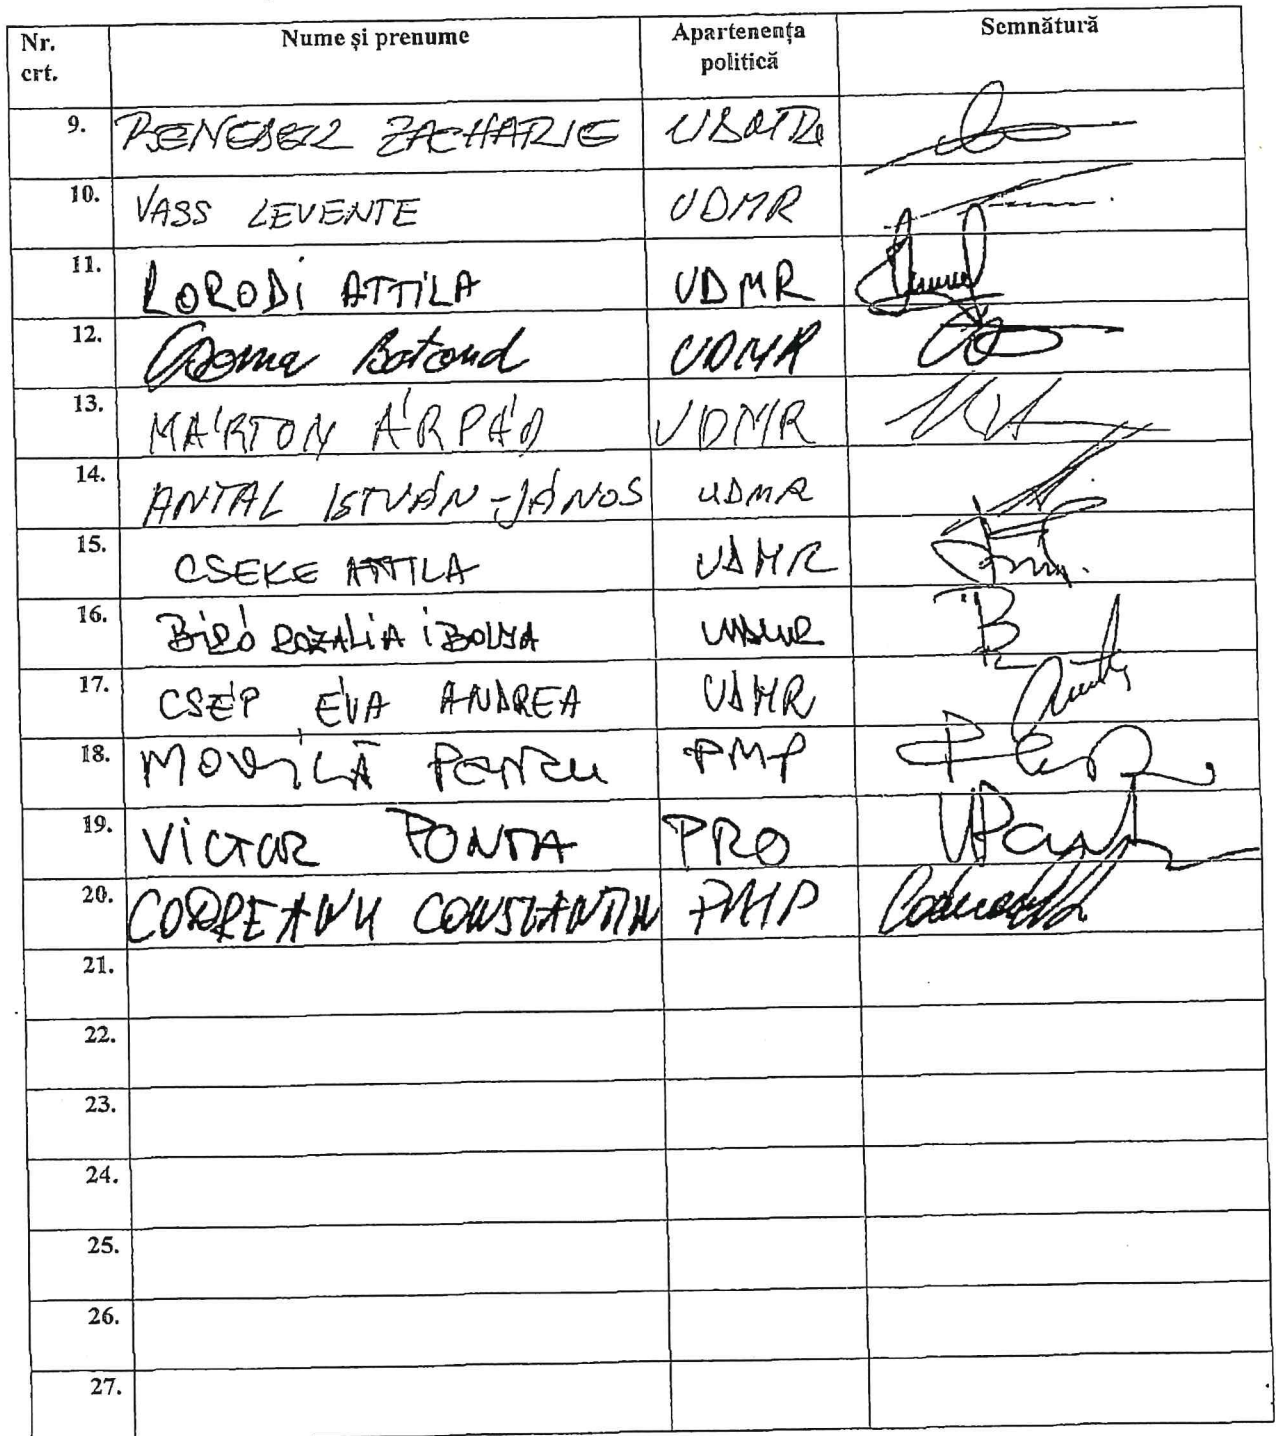 Nr. crt. Nume și prenume Apartenența politică Semnătură
9. ZACHARIE
10. VASS LEVENTE UDMR
11. KORODI ATTILA UDMR
12. Csoma Botond UDMR
13. MÁRTON ÁRPÁD UDMR
14. ANTAL ISTVÁN-JÁNOS UDMR
15. CSEKE ATTILA UDMR
16. BIRÓ ROZALIA IBOLYA UDMR
17. CSÉP ÉVA ANDREA UDMR
18. MOVILĂ PETRU PMP
19. VICTOR PONTA PRO VPonta
20. CODREANU CONSTANTIN PMP
21.
22.
23.
24.
25.
26.
27.